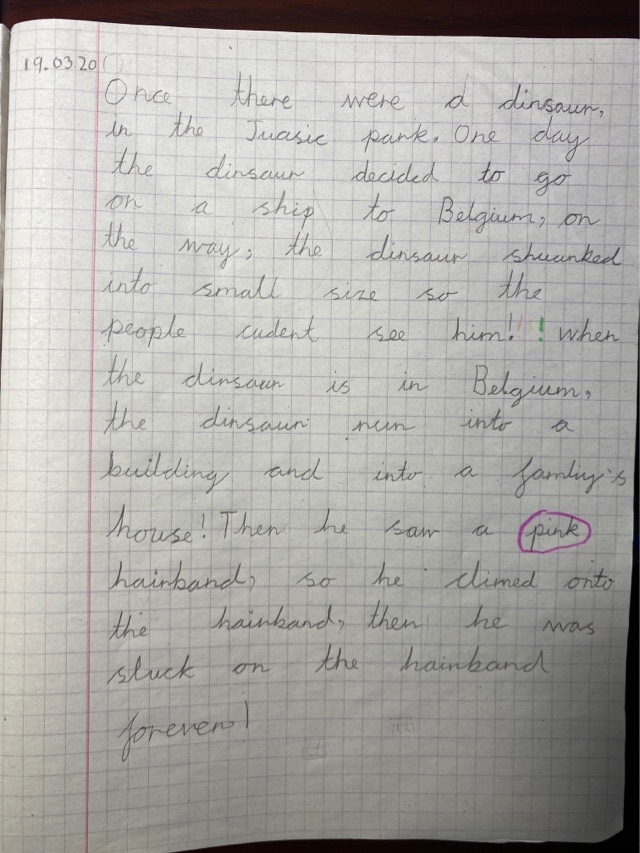 19.03.20
Once there were a dinsaur,
in the Juasic park. One day
the dinsaur decided to go
on a ship to Belgium, on
the way, the dinsaur shuunked
into small size so the
people cudent see him! ! when
the dinsaur is in Belgium,
the dinsaur run into a
building and into a famluy's
house! Then he saw a pink
hairband, so he climed onto
the hairband, then he was
stuck on the hairband
forever!